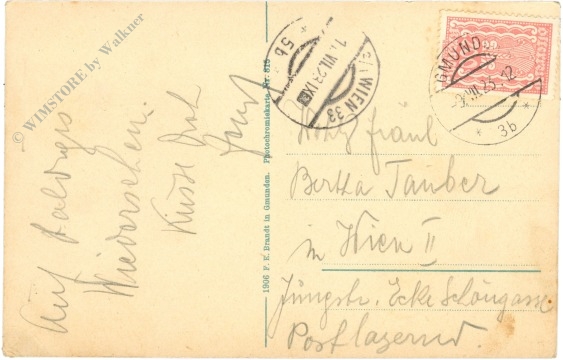 © WIMSTORE by Walkner
Auf baldiges
Wiedersehen.
Küsse Dich
1906 F. E. Brandt in Gmunden. Photochromiekarte Nr. 815
WIEN 33
* 5b
GMUNDEN
* 3b *
Fräul
Bertha Tauber
in Wien II
Ecke Schöngasse
Postlagernd.